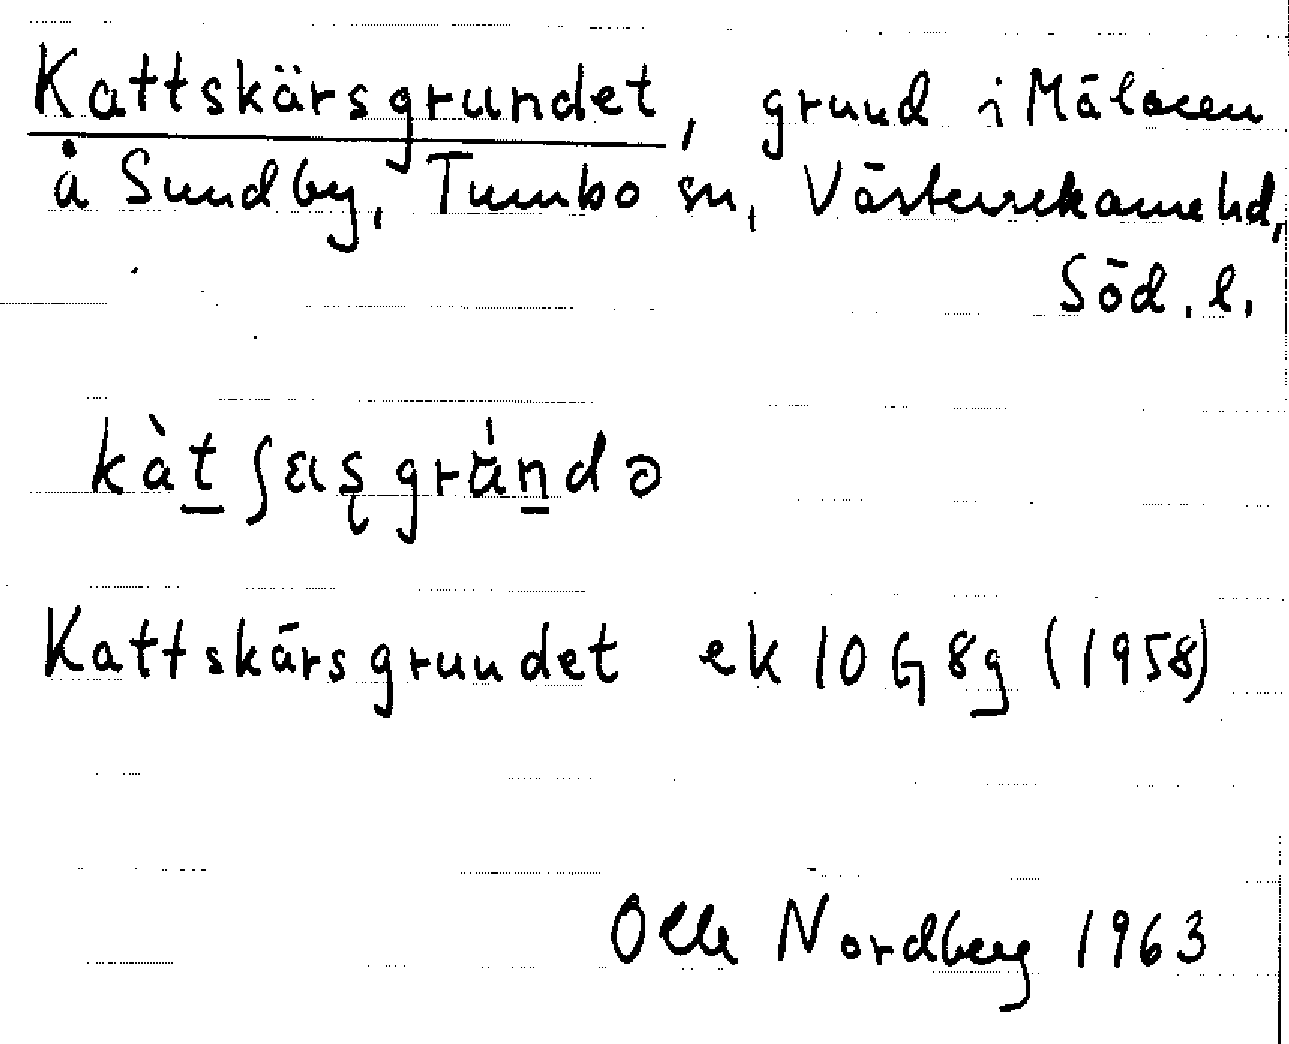 Kattskärsgrundet, grund i Mälaren
å Sundby, Tumbo sn, Västerrekarne hd,
Söd. l.
kàt̲ ʃɛɩʂgrʉ̀n̲də
Kattskärsgrundet ek 10G 8g (1958)
Olle Nordberg 1963